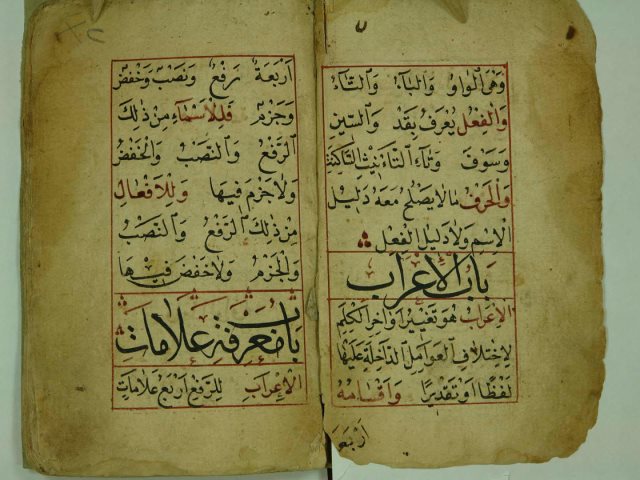 وَهِيَ الْوَاوُ وَالْبَاءُ وَالتَّاءُ
وَالْفِعْلُ يُعْرَفُ بِقَدْ وَالسِّينِ
وَسَوْفَ وَتَاءِ التَّأْنِيثِ السَّاكِنَةِ
وَالْحَرْفُ مَا لَا يَصْلُحُ مَعَهُ دَلِيلُ
الْاِسْمِ وَلَا دَلِيلُ الْفِعْلِ
بَابُ الْإِعْرَابِ
الْإِعْرَابُ هُوَ تَغْيِيرُ أَوَاخِرِ الْكَلِمِ
لِاخْتِلَافِ الْعَوَامِلِ الدَّاخِلَةِ عَلَيْهَا
لَفْظًا أَوْ تَقْدِيرًا وَأَقْسَامُهُ
أَرْبَعَة
أَرْبَعَةٌ رَفْعٌ وَنَصْبٌ وَخَفْضٌ
وَجَزْمٌ فَلِلْأَسْمَاءِ مِنْ ذٰلِكَ
الرَّفْعُ وَالنَّصْبُ وَالْخَفْضُ
وَلَا جَزْمَ فِيهَا وَلِلْأَفْعَالِ
مِنْ ذٰلِكَ الرَّفْعُ وَالنَّصْبُ
وَالْجَزْمُ وَلَا خَفْضَ فِيهَا
بَابُ مَعْرِفَةِ عَلَامَاتِ
الْإِعْرَابِ لِلرَّفْعِ أَرْبَعُ عَلَامَاتٍ